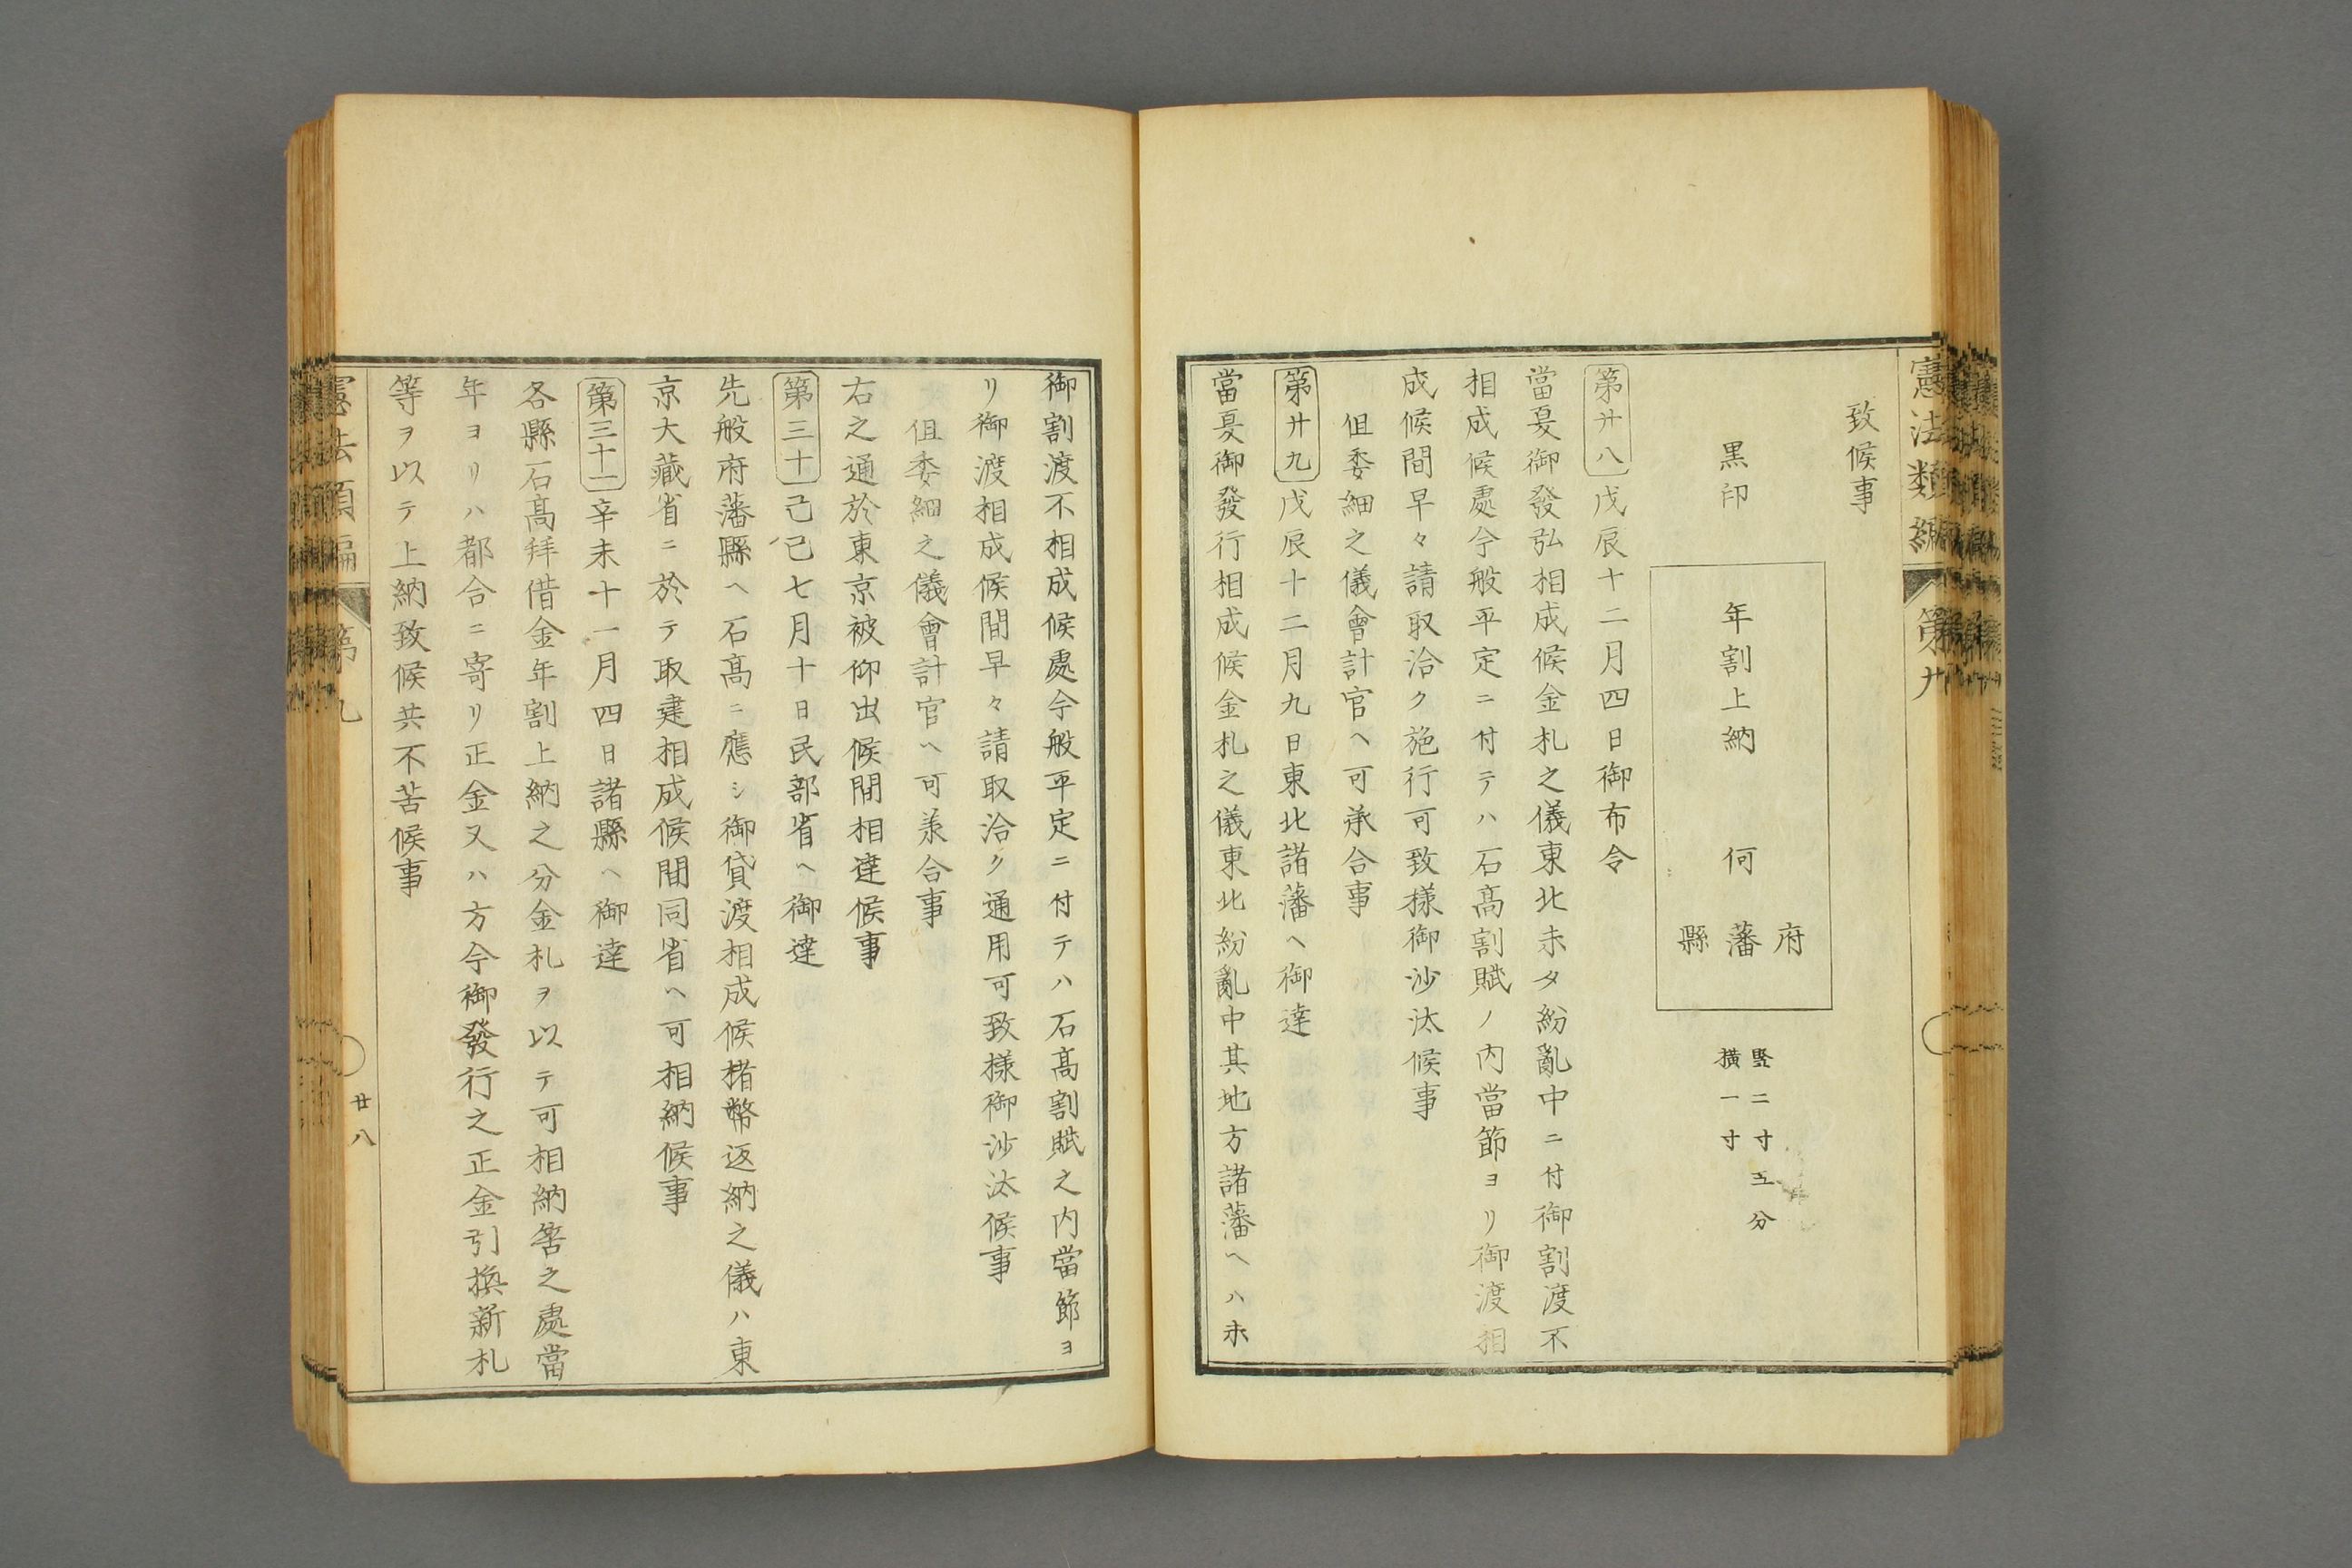 憲法類編
第廾
致候事
黒印
年割上納
何
府
藩
縣
竪二寸五分
横一寸
第廾八 戊辰十二月四日御布令
當夏御發弘相成候金札之儀東北未タ紛亂中ニ付御割渡不
相成候處今般平定ニ付テハ石髙割賦ノ内當節ヨリ御渡相
成候間早々請取洽ク施行可致樣御沙汰候事
但委細之儀會計官ヘ可承合事
第廾九 戊辰十二月九日東北諸藩ヘ御達
當夏御發行相成候金札之儀東北紛亂中其地方諸藩ヘハ未
御割渡不相成候處今般平定ニ付テハ石髙割賦之内當節ヨ
リ御渡相成候間早々請取洽ク通用可致樣御沙汰候事
但委細之儀會計官ヘ可承合事
右之通於東京被仰出候間相達候事
第三十 己巳七月十日民部省ヘ御達
先般府藩縣ヘ石髙ニ應シ御貸渡相成候楮幣返納之儀ハ東
京大藏省ニ於テ取建相成候間同省ヘ可相納候事
第三十一 辛未十一月四日諸縣ヘ御達
各縣石髙拜借金年割上納之分金札ヲ以テ可相納筈之處當
年ヨリハ都合ニ寄リ正金又ハ方今御發行之正金引換新札
等ヲ以テ上納致候共不苦候事
憲法類編
第九
廿八